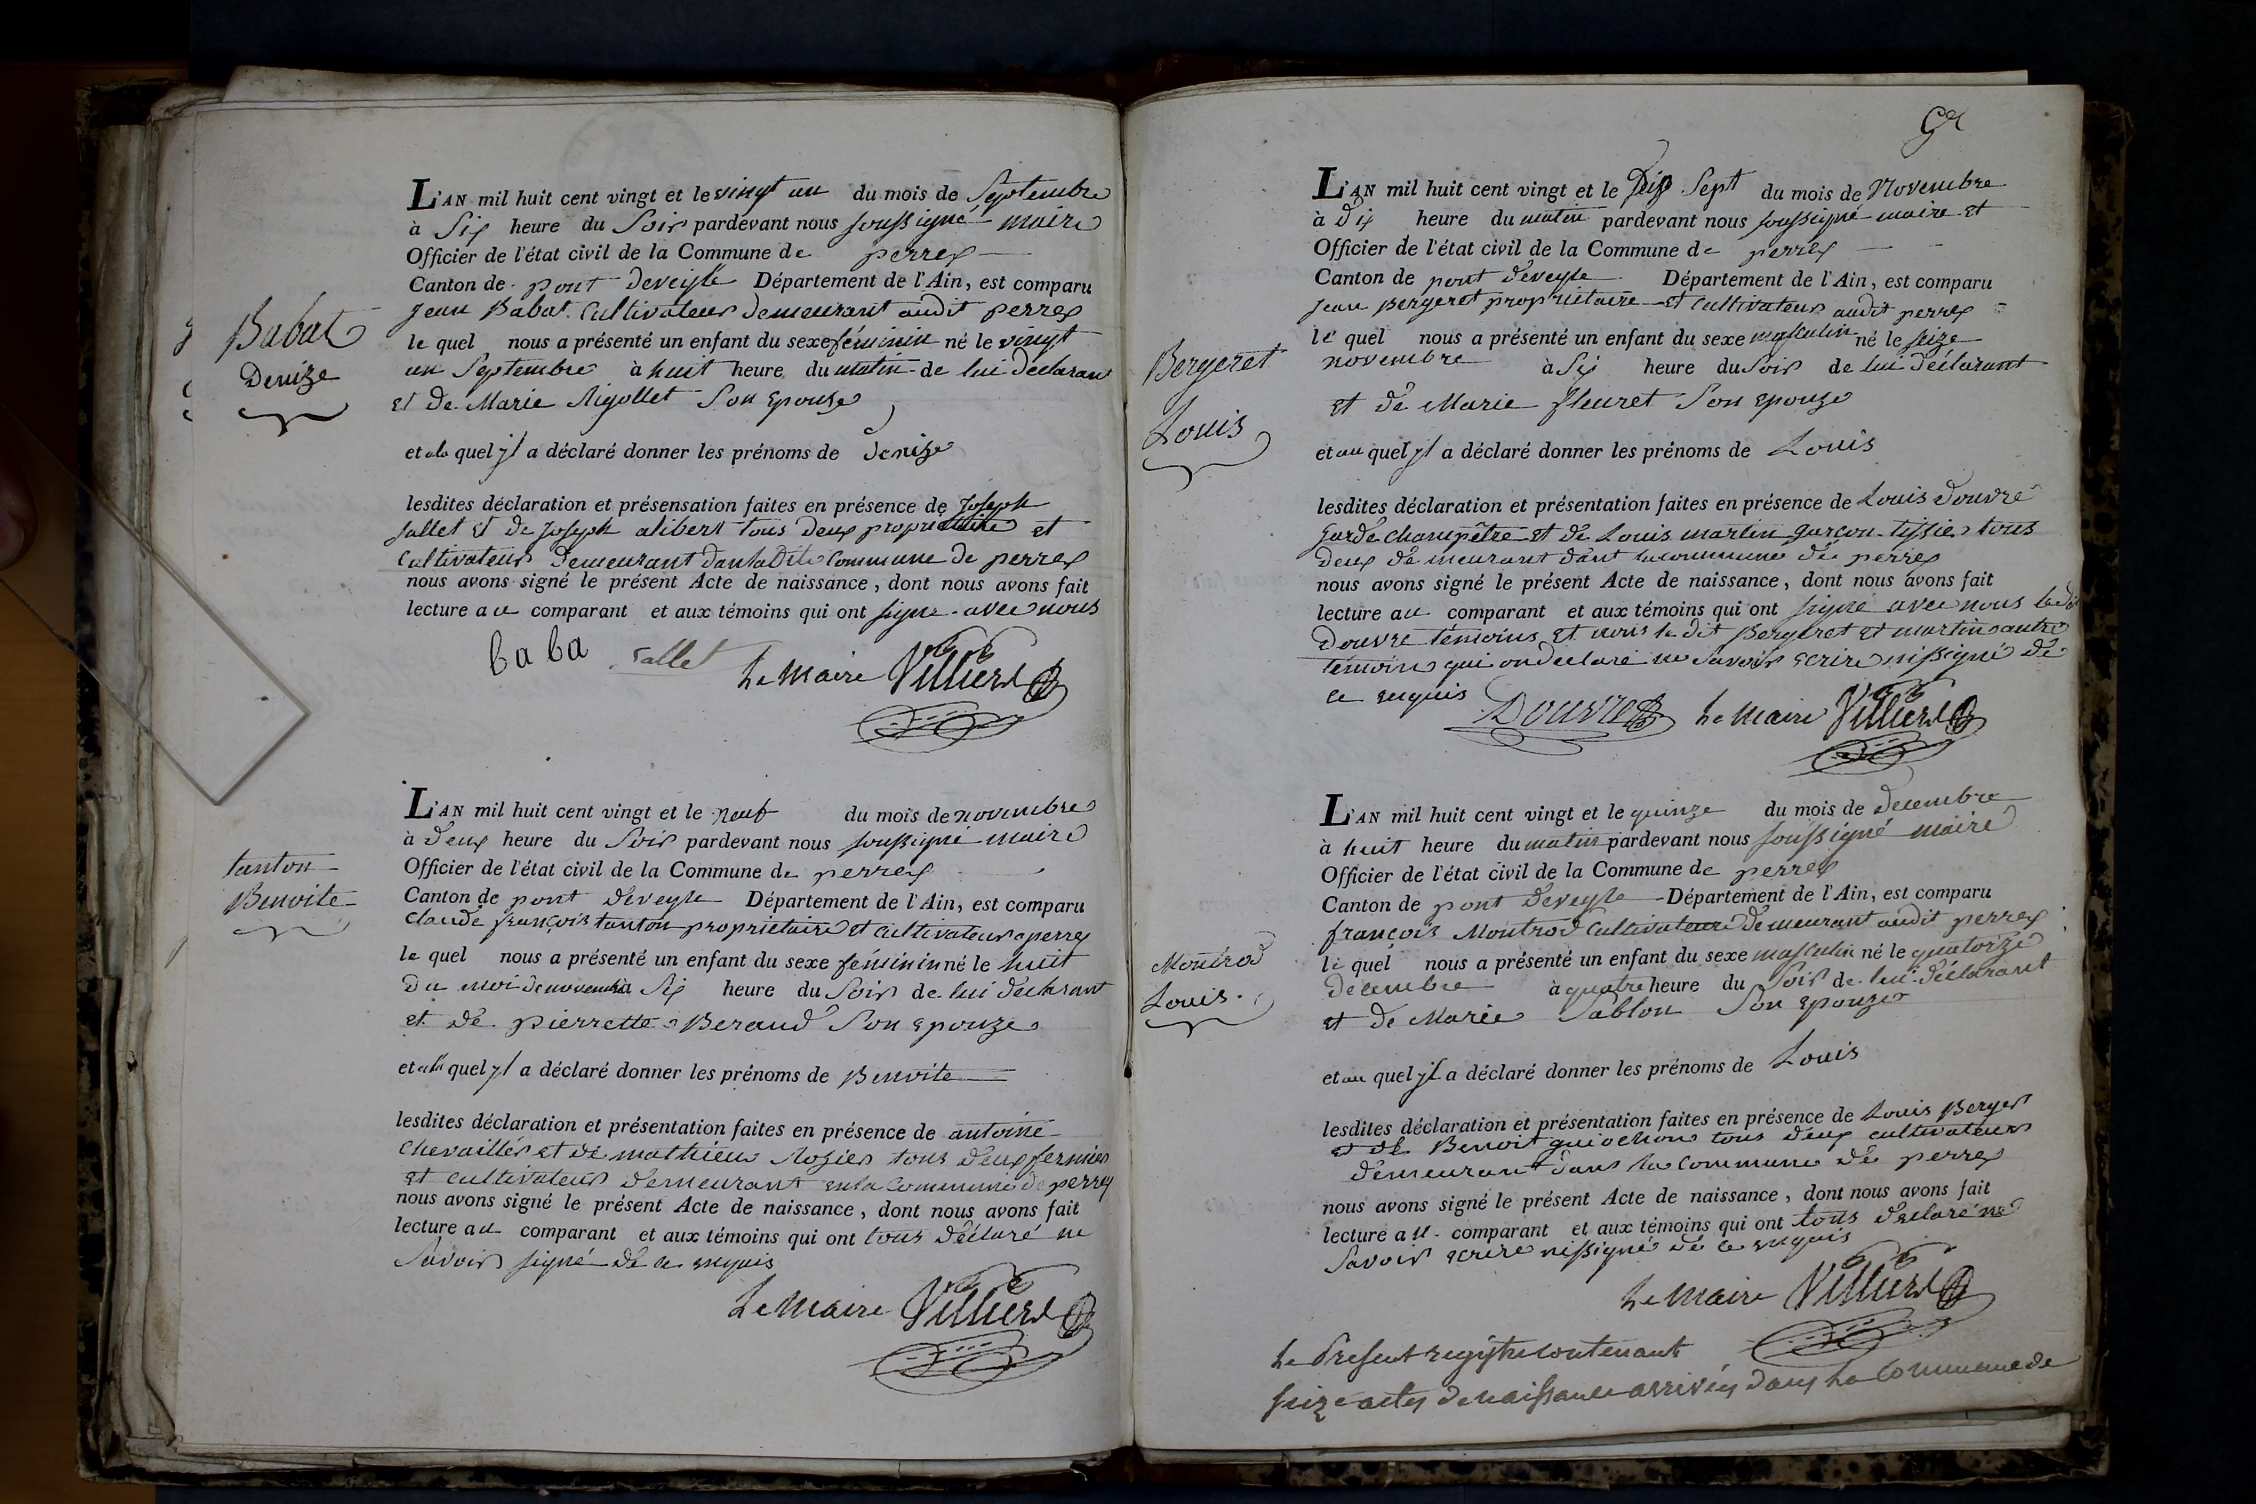 Babat
Denize
L'AN mil huit cent vingt et le vingt un du mois de Septembre
à Six heure du Soir pardevant nous soussigné maire
Officier de l'état civil de la Commune de perrex
Canton de pont deveyle Département de l'Ain, est comparu
Jean Babat Cultivateur demeurant audit perrex
le quel nous a présenté un enfant du sexe féminin né le vingt
un Septembre à huit heure du matin de lui déclarant
et de Marie Rigollet Son epouze
et ala quel yl a déclaré donner les prénoms de denize
lesdites déclaration et présensation faites en présence de Joseph
Sallet et de Joseph alibert tous deux propriétaire et
Cultivateur demeurant danladite Commune de perrex
nous avons signé le présent Acte de naissance, dont nous avons fait
lecture au comparant et aux témoins qui ont signe avec nous
baba Sallet Le Maire Villierd
tanton
Benoite
L'AN mil huit cent vingt et le neuf du mois de novembre
à deux heure du Soir pardevant nous soussigné maire
Officier de l'état civil de la Commune de perrex
Canton de pont deveyle Département de l'Ain, est comparu
Claude françois tanton propriétaire et Cultivateur a perrex
le quel nous a présenté un enfant du sexe féminin né le huit
du moi de novembre à Six heure du Soir de lui déclarant
et de pierrette Beraud Son epouze
et ala quel yl a déclaré donner les prénoms de Benoite
lesdites déclaration et présentation faites en présence de antoine
Chevaillér et de mathieu Rozier tous deux fermier
et cultivateur demeurant enla Commune de perrex
nous avons signé le présent Acte de naissance, dont nous avons fait
lecture au comparant et aux témoins qui ont tous déclaré ne
Savoir signé de ce enquis
Le Maire Villierd
Bergeret
Louis
L'AN mil huit cent vingt et le Dix Sept du mois de Novembre
à dix heure du matin pardevant nous soussigné maire et
Officier de l'état civil de la Commune de perrex
Canton de pont deveyle Département de l'Ain, est comparu
Jean Bergeret propriétaire et Cultivateur audit perrex
le quel nous a présenté un enfant du sexe masculin né le seize
novembre à Six heure du Soir de lui déclarant
et de Marie fleuret Son epouze
et au quel yl a déclaré donner les prénoms de Louis
lesdites déclaration et présentation faites en présence de Louis douvre
garde champêtre et de Louis martin garçon tissier tous
deux demeurant dant la commune de perrex
nous avons signé le présent Acte de naissance, dont nous avons fait
lecture au comparant et aux témoins qui ont signé avec nous ledit
Douvre témoins et nons le dit Bergeret et martin autre
témoins qui on déclaré ne Savoir ecrire nissigné de
ce enquis Douvre Le Maire Villierd
Montrod
Louis
L'AN mil huit cent vingt et le quinze du mois de décembre
à huit heure du matin pardevant nous soussigné maire
Officier de l'état civil de la Commune de perrex
Canton de pont deveyle Département de l'Ain, est comparu
françois Montrod Cultivateur demeurant audit perrex
le quel nous a présenté un enfant du sexe masculin né le quatorze
décembre à quatre heure du Soir de lui déclarant
et de Marie Sablon Son epouze
et au quel yl a déclaré donner les prénoms de Louis
lesdites déclaration et présentation faites en présence de Louis Berger
et de Benoit guiochon tous deux cultivateur
demeurant dans la Commune de perrex
nous avons signé le présent Acte de naissance, dont nous avons fait
lecture au comparant et aux témoins qui ont tous déclaré ne
Savoir ecrire nissigné de ce enquis
Le Maire Villierd
Le Present registre contenant
seize actes de naissance arrivés dans La Commune de